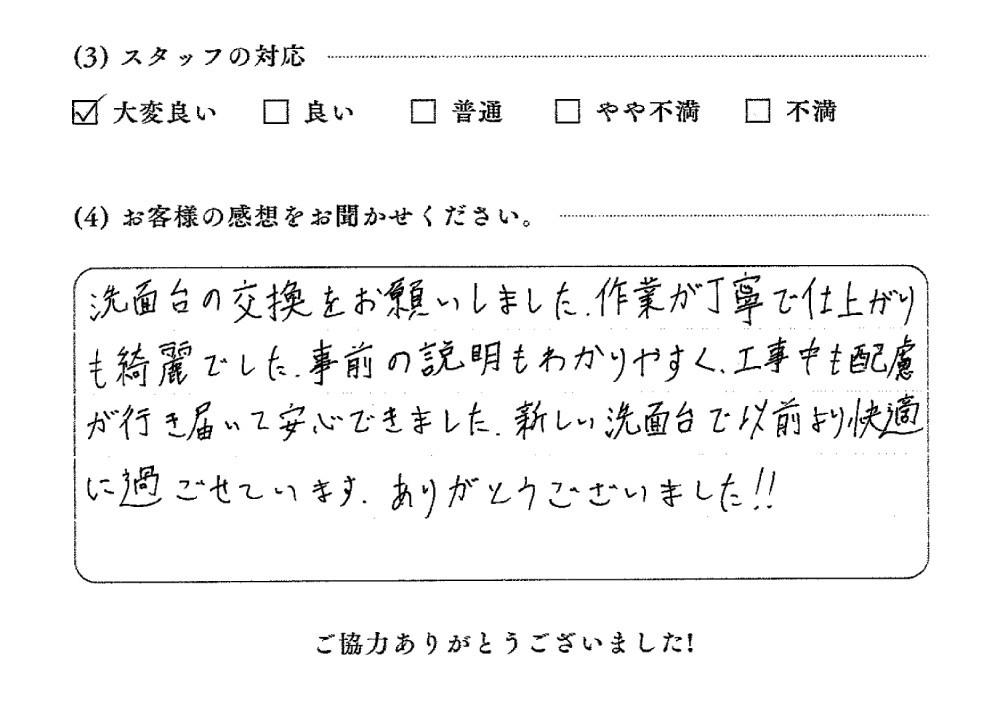 (3) スタッフの対応
☑ 大変良い □ 良い □ 普通 □ やや不満 □ 不満
(4) お客様の感想をお聞かせください。
洗面台の交換をお願いしました.作業が丁寧で仕上がり
も綺麗でした.事前の説明もわかりやすく、工事中も配慮
が行き届いて安心できました.新しい洗面台で以前より快適
に過ごせています.ありがとうございました!!
ご協力ありがとうございました!